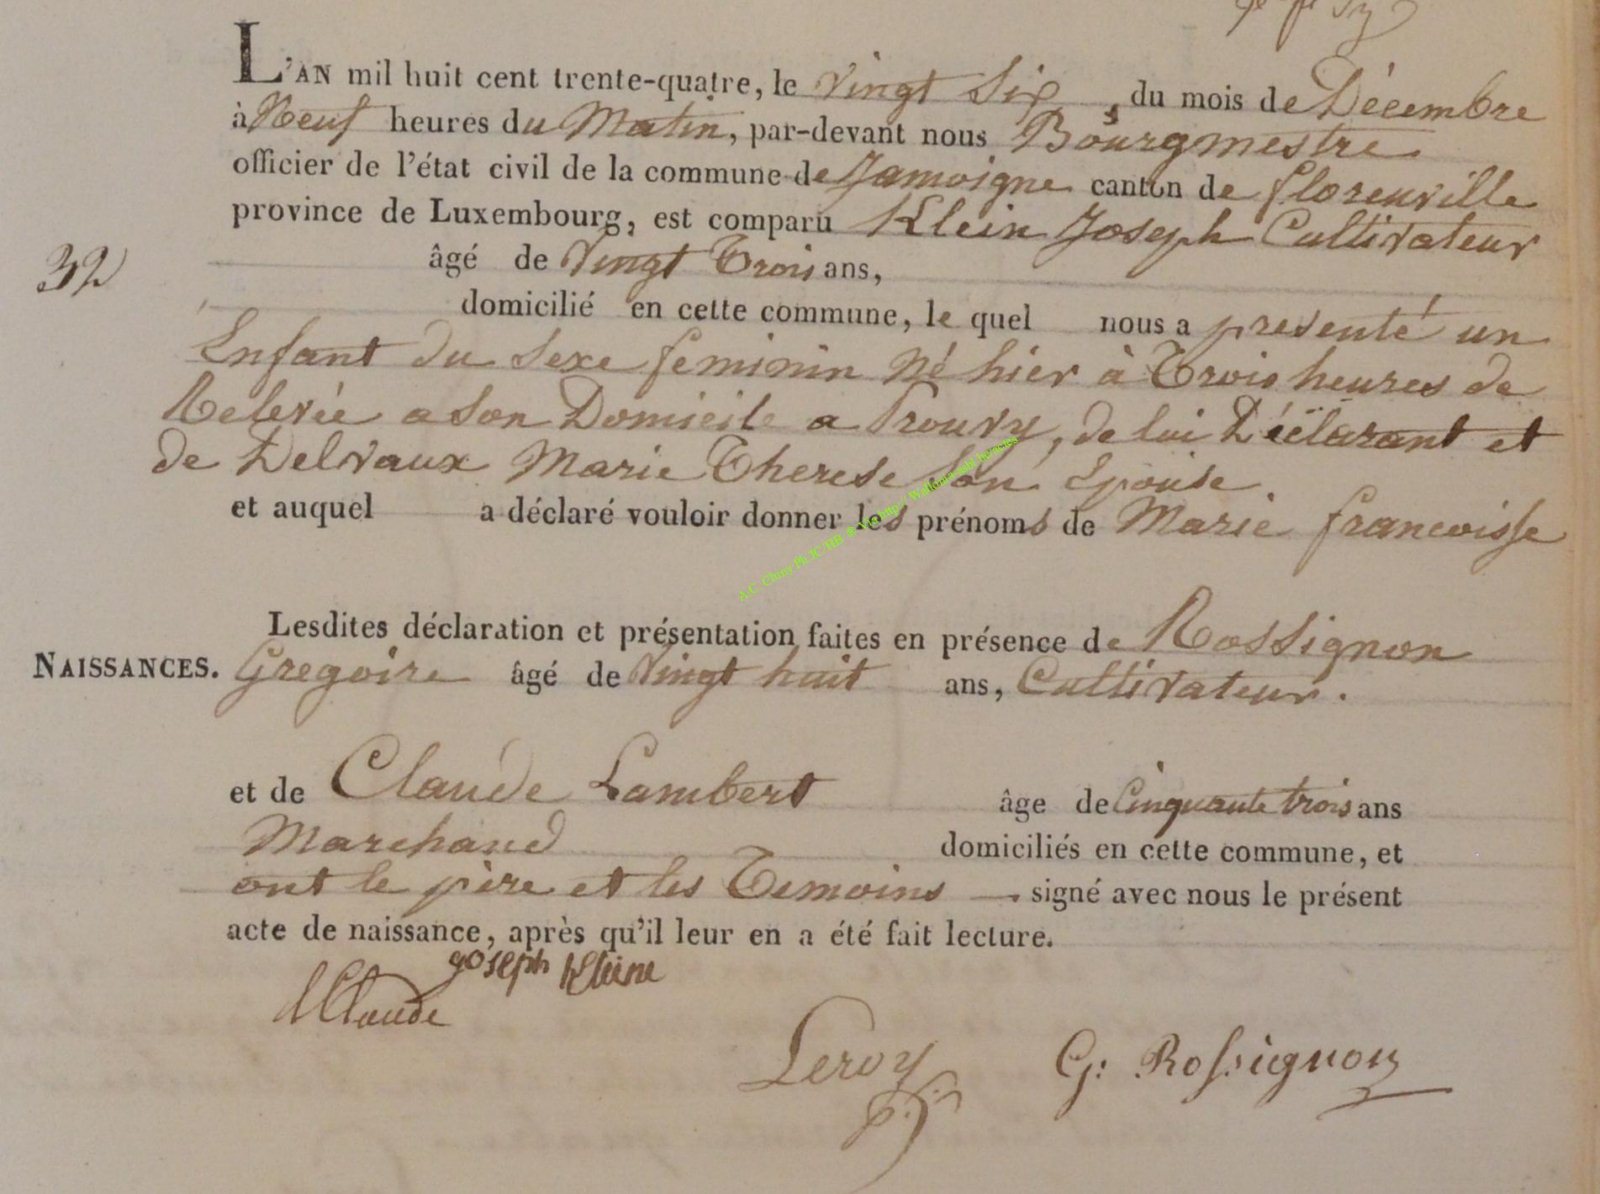 L'AN mil huit cent trente-quatre, le vingt Six, du mois de Décembre
à Neuf heures du Matin, par-devant nous Bourgmestre
officier de l'état civil de la commune de Jamoigne canton de florenville
province de Luxembourg, est comparu Klein Joseph Cultivateur
âgé de Vingt Trois ans,
32
domicilié en cette commune, le quel nous a presenté un
Enfant du Sexe feminin Né hier à Trois heures de
Relevée a son Domicile a Prouvy, de lui Déclarant et
de Delvaux Marie Therese Son Epouse
et auquel a déclaré vouloir donner les prénoms de Marie francoisse
Lesdites déclaration et présentation faites en présence de Rossignon
NAISSANCES. Gregoire âgé de Vingt huit ans, Cultivateur.
et de Claude Lambert âge de Cinquante trois ans
Marchand domiciliés en cette commune, et
ont le père et les Temoins — signé avec nous le présent
acte de naissance, après qu'il leur en a été fait lecture.
Joseph Kleine
LClaude
Leroy G: Rossignon